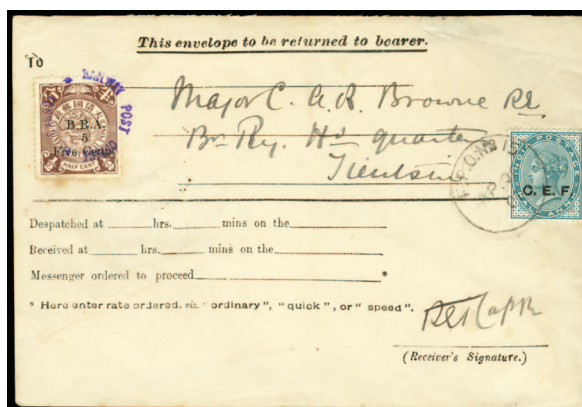 This envelope to be returned to bearer.
To
RAILWAY POST
B.R.A.
5
Five Cents
HALF CENT
Major C. A. R. Browne RE
Br Ry. Hd quarters
Tientsin
INDIA POSTAGE
C. E. F
Despatched at hrs. mins on the
Received at hrs. mins on the
Messenger ordered to proceed *
* Here enter rate ordered, viz. "ordinary", "quick", or "speed".
(Receiver's Signature.)